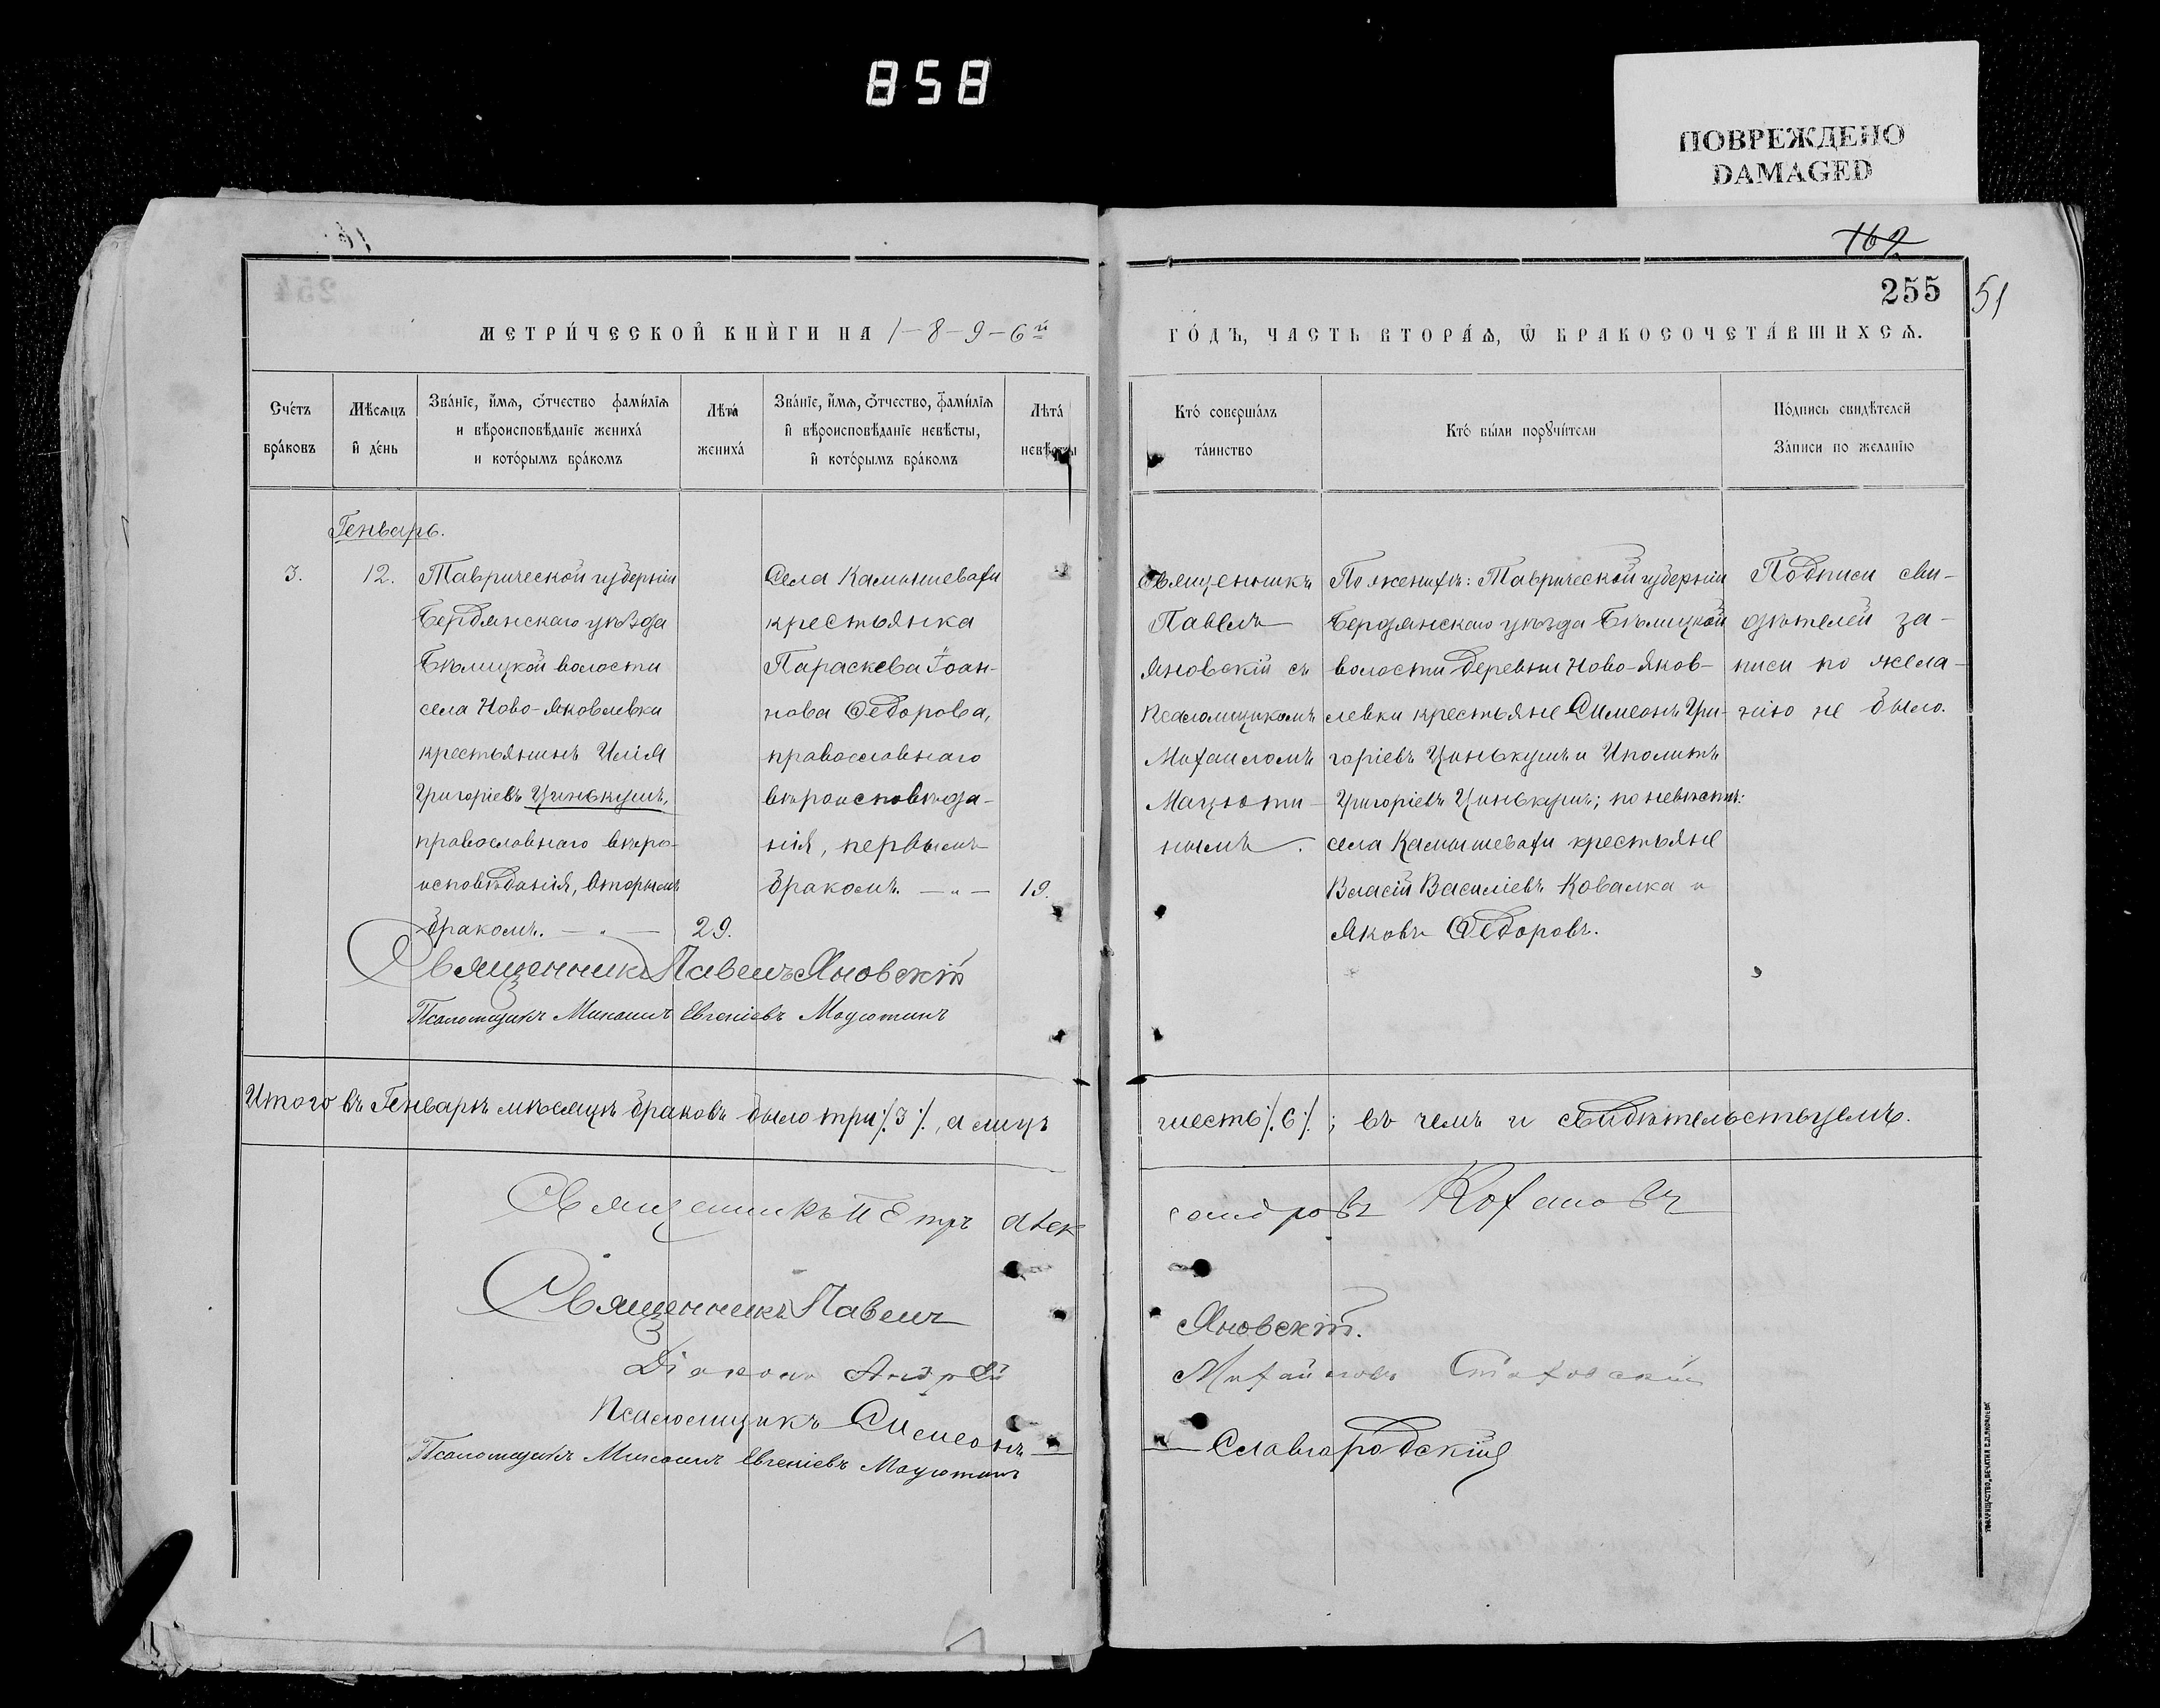 858
ПОВРЕЖДЕНО
DAMAGED
167
255
51
МЕТРИ́ЧЕСКОЙ КНИ́ГИ НА 1-8-9-6й
ГО́ДЪ, ЧАСТЬ ВТОРА́Ѧ, Ѽ БРАКОСОЧЕТА́ВШИХСѦ.
Сче́тъ
бра́ковъ
Мѣ́сѧцъ
и҆ де́нь
Зва́нїе, и҆́мѧ, ѻ҆́тчество фами́лїѧ
и вѣроисповѣ́данїе жениха́
и кото́рымъ бра́комъ
Лѣта́
жениха́
Зва́нїе, и҆́мѧ, ѻ҆́тчество, фами́лїѧ
и҆ вѣроисповѣ́данїе невѣ́сты,
и҆ кото́рымъ бра́комъ
Лѣта́
невѣ́сты
Кто́ соверша́лъ
та́инство
Кто́ бы́ли порꙋчи́тели
По́дпись свидѣ́телей
За́писи по жела́нїю
Генварь.
3.
12.
Таврической губерніи
Бердянскаго уѣзда
Бѣлицкой волости
села Ново-Яковлевки
крестьянинъ Илія
Григоріевъ Цинькушъ,
православнаго вѣро-
исповѣданія, вторымъ
бракомъ. — " —
29.
Села Камышевахи
крестьянка
Параскева Іоан-
нова Ѳедорова,
православнаго
вѣроисповѣда-
нія, первымъ
бракомъ. — " —
19.
Священникъ
Павелъ
Яновскій съ
псаломщикомъ
Михаиломъ
Мацюти-
нымъ.
По женихѣ: Таврической губерніи
Бердянскаго уѣзда Бѣлицкой
волости деревни Ново-Яков-
левки крестьяне Симеонъ Гри-
горіевъ Цинькушъ и Иполитъ
Григоріевъ Цинькушъ; по невѣстѣ:
села Камышевахи крестьяне
Власій Василіевъ Ковалка и
Яковъ Ѳедоровъ.
Подписи сви-
дѣтелей за-
писи по жела-
нію не было.
Священникъ Павелъ Яновскій
Псаломщикъ Михаилъ Евгеніевъ Мацютинъ
Итого въ Генварѣ мѣсяцѣ браковъ было три ⁒3⁒, а лицъ шесть ⁒6⁒; въ чемъ и свидѣтельствуемъ.
Священникъ Петръ Александровъ Кохановъ
Священникъ Павелъ Яновскій.
Діаконъ Андрей Михайловъ Стаховскій
Псаломщикъ Симеонъ — Славгородскій
Псаломщикъ Михаилъ Евгеніевъ Мацютинъ